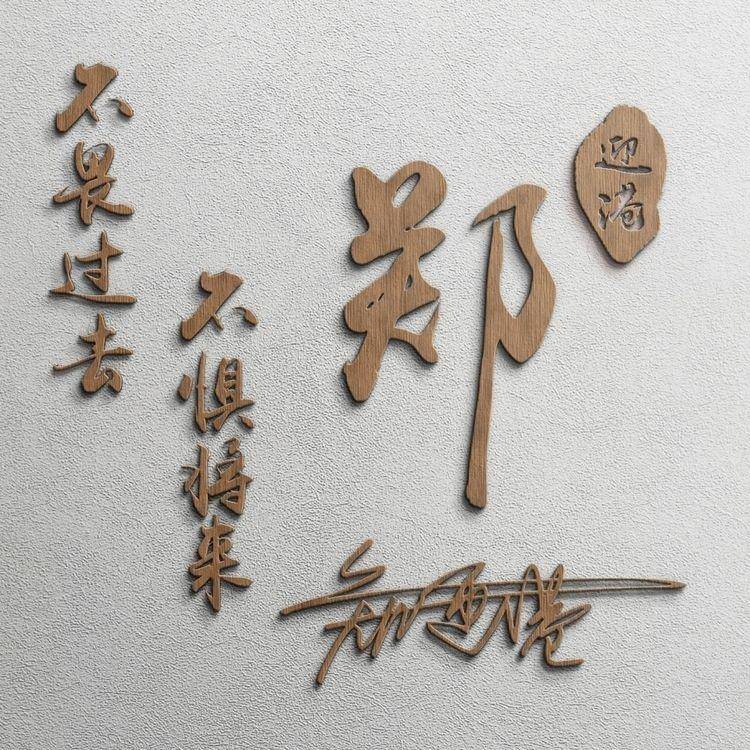 不畏过去
不惧将来
郑
迎港